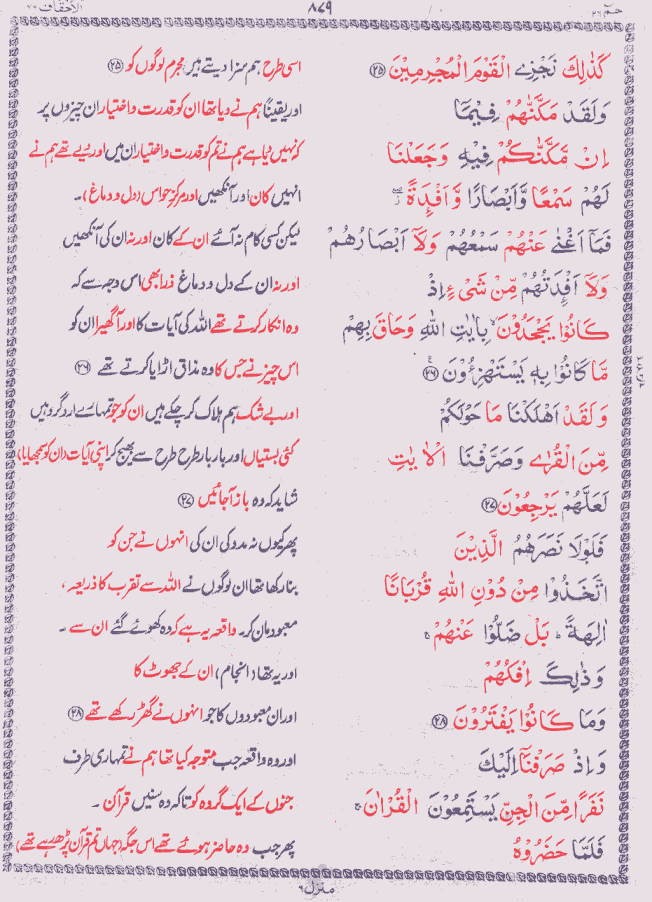 حٰمٓ ۲۶
۸۷۹
الاحقاف ۴۶
كَذٰلِكَ نَجْزِي الْقَوْمَ الْمُجْرِمِيْنَ ۲۵
اسی طرح ہم سزا دیتے ہیں مجرم لوگوں کو ۲۵
وَلَقَدْ مَكَّنّٰهُمْ فِيْمَا
اور یقیناً ہم نے دیا تھا ان کو قدرت و اختیار ان چیزوں پر
اِنْ مَّكَّنّٰكُمْ فِيْهِ وَجَعَلْنَا
کہ نہیں دیا ہے ہم نے تم کو قدرت و اختیار ان میں اور دیے تھے ہم نے
لَهُمْ سَمْعًا وَّاَبْصَارًا وَّاَفْـِٕدَةً
انہیں کان اور آنکھیں اور مرکزِ حواس (دل و دماغ)۔
فَمَآ اَغْنٰى عَنْهُمْ سَمْعُهُمْ وَلَآ اَبْصَارُهُمْ
لیکن کسی کام نہ آئے ان کے کان اور نہ ان کی آنکھیں
وَلَآ اَفْـِٕدَتُهُمْ مِّنْ شَيْءٍ اِذْ
اور نہ ان کے دل و دماغ ذرا بھی اس وجہ سے کہ
كَانُوْا يَجْحَدُوْنَ بِاٰيٰتِ اللّٰهِ وَحَاقَ بِهِمْ
وہ انکار کرتے تھے اللہ کی آیات کا اور آ گھیرا ان کو
مَّا كَانُوْا بِهٖ يَسْتَهْزِءُوْنَ ۲۶
اس چیز نے جس کا وہ مذاق اڑایا کرتے تھے ۲۶
وَلَقَدْ اَهْلَكْنَا مَا حَوْلَكُمْ
اور بے شک ہم ہلاک کر چکے ہیں ان کو جو تمہارے ارد گرد ہیں
مِّنَ الْقُرٰى وَصَرَّفْنَا الْاٰيٰتِ
کئی بستیاں اور بار بار طرح طرح سے بھیج کر اپنی آیات (ان کو سمجھایا)
لَعَلَّهُمْ يَرْجِعُوْنَ ۲۷
شاید کہ وہ باز آ جائیں ۲۷
فَلَوْلَا نَصَرَهُمُ الَّذِيْنَ
پھر کیوں نہ مدد کی ان کی انہوں نے جن کو
اتَّخَذُوْا مِنْ دُوْنِ اللّٰهِ قُرْبَانًا
بنا رکھا تھا ان لوگوں نے اللہ سے تقرب کا ذریعہ،
اٰلِهَةً ؕ بَلْ ضَلُّوْا عَنْهُمْ ۚ
معبود مان کر۔ واقعہ یہ ہے کہ وہ کھوئے گئے ان سے۔
وَذٰلِكَ اِفْكُهُمْ
اور یہ تھا (انجام) ان کے جھوٹ کا
وَمَا كَانُوْا يَفْتَرُوْنَ ۲۸
اور ان معبودوں کا جو انہوں نے گھڑ رکھے تھے ۲۸
وَاِذْ صَرَفْنَآ اِلَيْكَ
اور وہ واقعہ جب متوجہ کیا تھا ہم نے تمہاری طرف
نَفَرًا مِّنَ الْجِنِّ يَسْتَمِعُوْنَ الْقُرْاٰنَ ۚ
جنوں کے ایک گروہ کو تاکہ وہ سنیں قرآن۔
فَلَمَّا حَضَرُوْهُ
پھر جب وہ حاضر ہوئے تھے اس جگہ (جہاں تم قرآن پڑھ رہے تھے)
منزل ۶